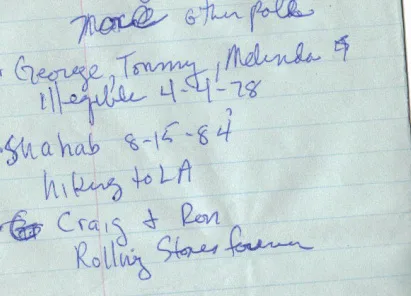 other poles
George, Tommy, Melinda &
Illegible 4-4-78
Shahab 8-15-84?
hiking to LA
Craig & Ron
Rolling Stones forever